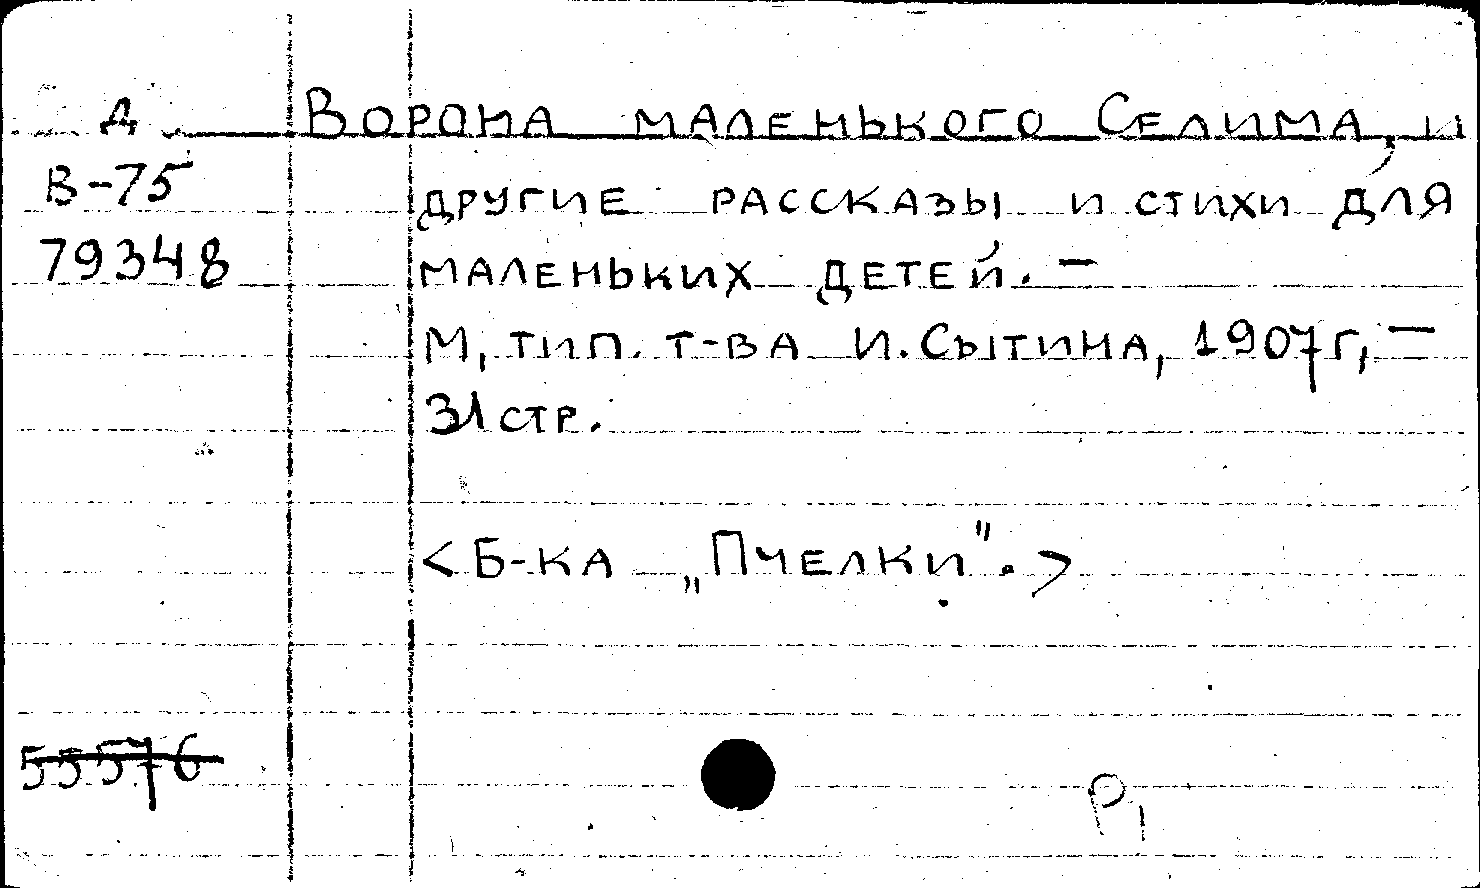 Д Ворона маленького Селима, и
В-75 другие рассказы и стихи для
79348 маленьких детей. —
М, тип. т-ва И. Сытина, 1907г, —
31 стр.
<Б-ка „Пчелки".>
55576
Р1